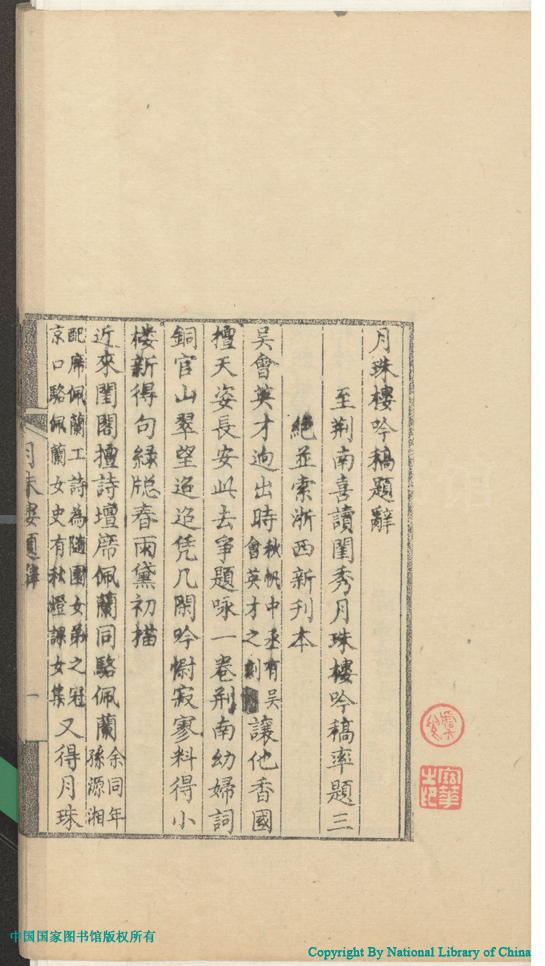 月珠樓吟稿題辭
至荆南喜讀閨秀月珠樓吟稿率題三
絶並索浙西新刊本
吳會英才迥出時秋帆中丞有吳會英才之刻讓他香國
擅天姿長安此去爭題咏一卷荆南幼婦詞
銅官山翠望迢迢凭几閑吟慰寂寥料得小
楼新得句緑牕春雨黛初描
近來閨閣擅詩壇席佩蘭同駱佩蘭余同年孫源湘
配席佩蘭工詩為隨園女弟之冠京口駱佩蘭女史有秋燈課女集又得月珠
月珠樓題辭
一
中国国家图书馆版权所有
Copyright By National Library of China